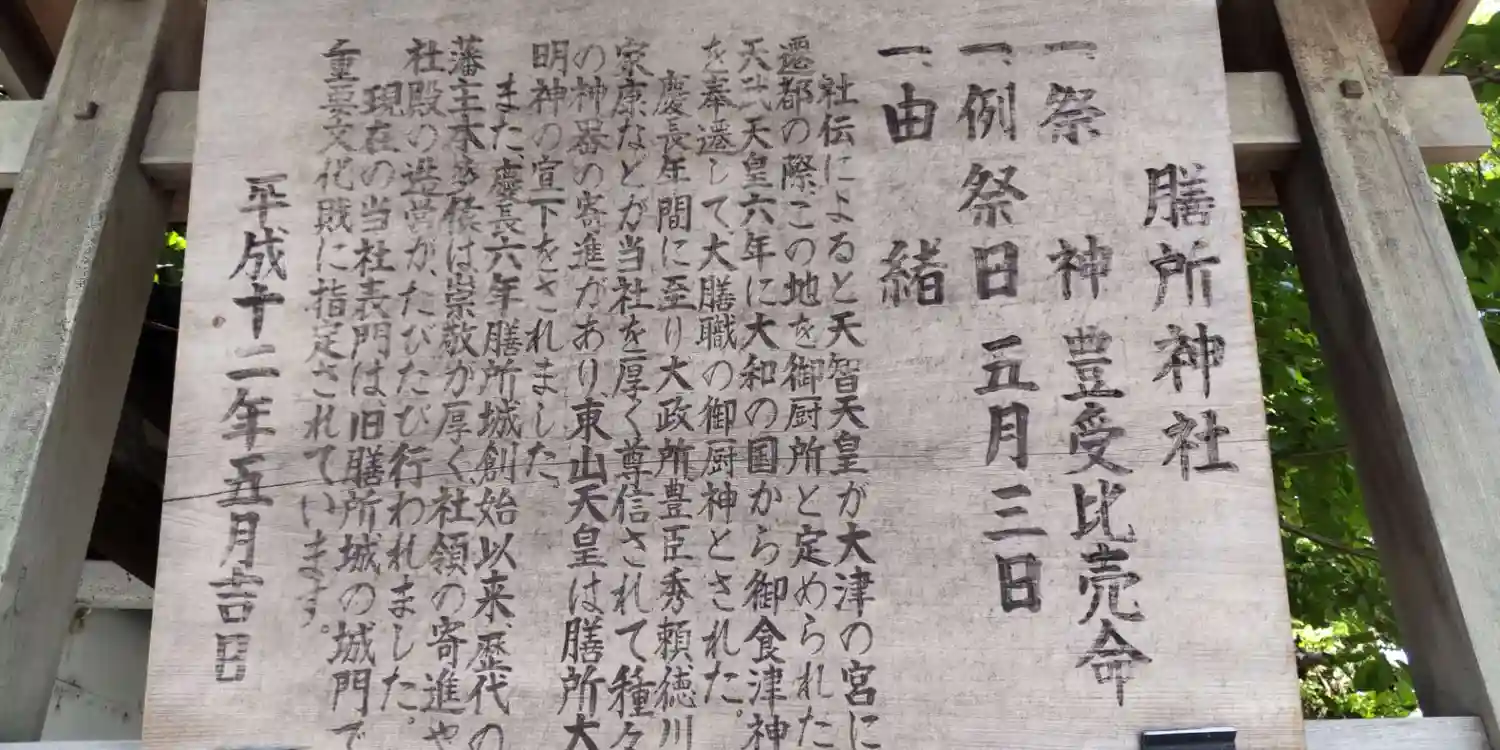 膳所神社
一、祭神 豊受比売命
一、例祭日 五月三日
一、由緒
社伝によると天智天皇が大津の宮に
遷都の際、この地を御厨所と定められた
天武天皇六年に大和の国から御食津神
を奉遷して大膳職の御厨神とされた。
慶長年間に至り大政所豊臣秀頼、徳川
家康などが当社を厚く尊信されて種々
の神器の寄進があり東山天皇は膳所大
明神の宣下をされました。
また、慶長六年膳所城創始以来、歴代の
藩主本多候は崇敬が厚く、社領の寄進や
社殿の造営が、たびたび行われました。
現在の当社表門は旧膳所城の城門で
重要文化財に指定されています。
平成十二年五月吉日